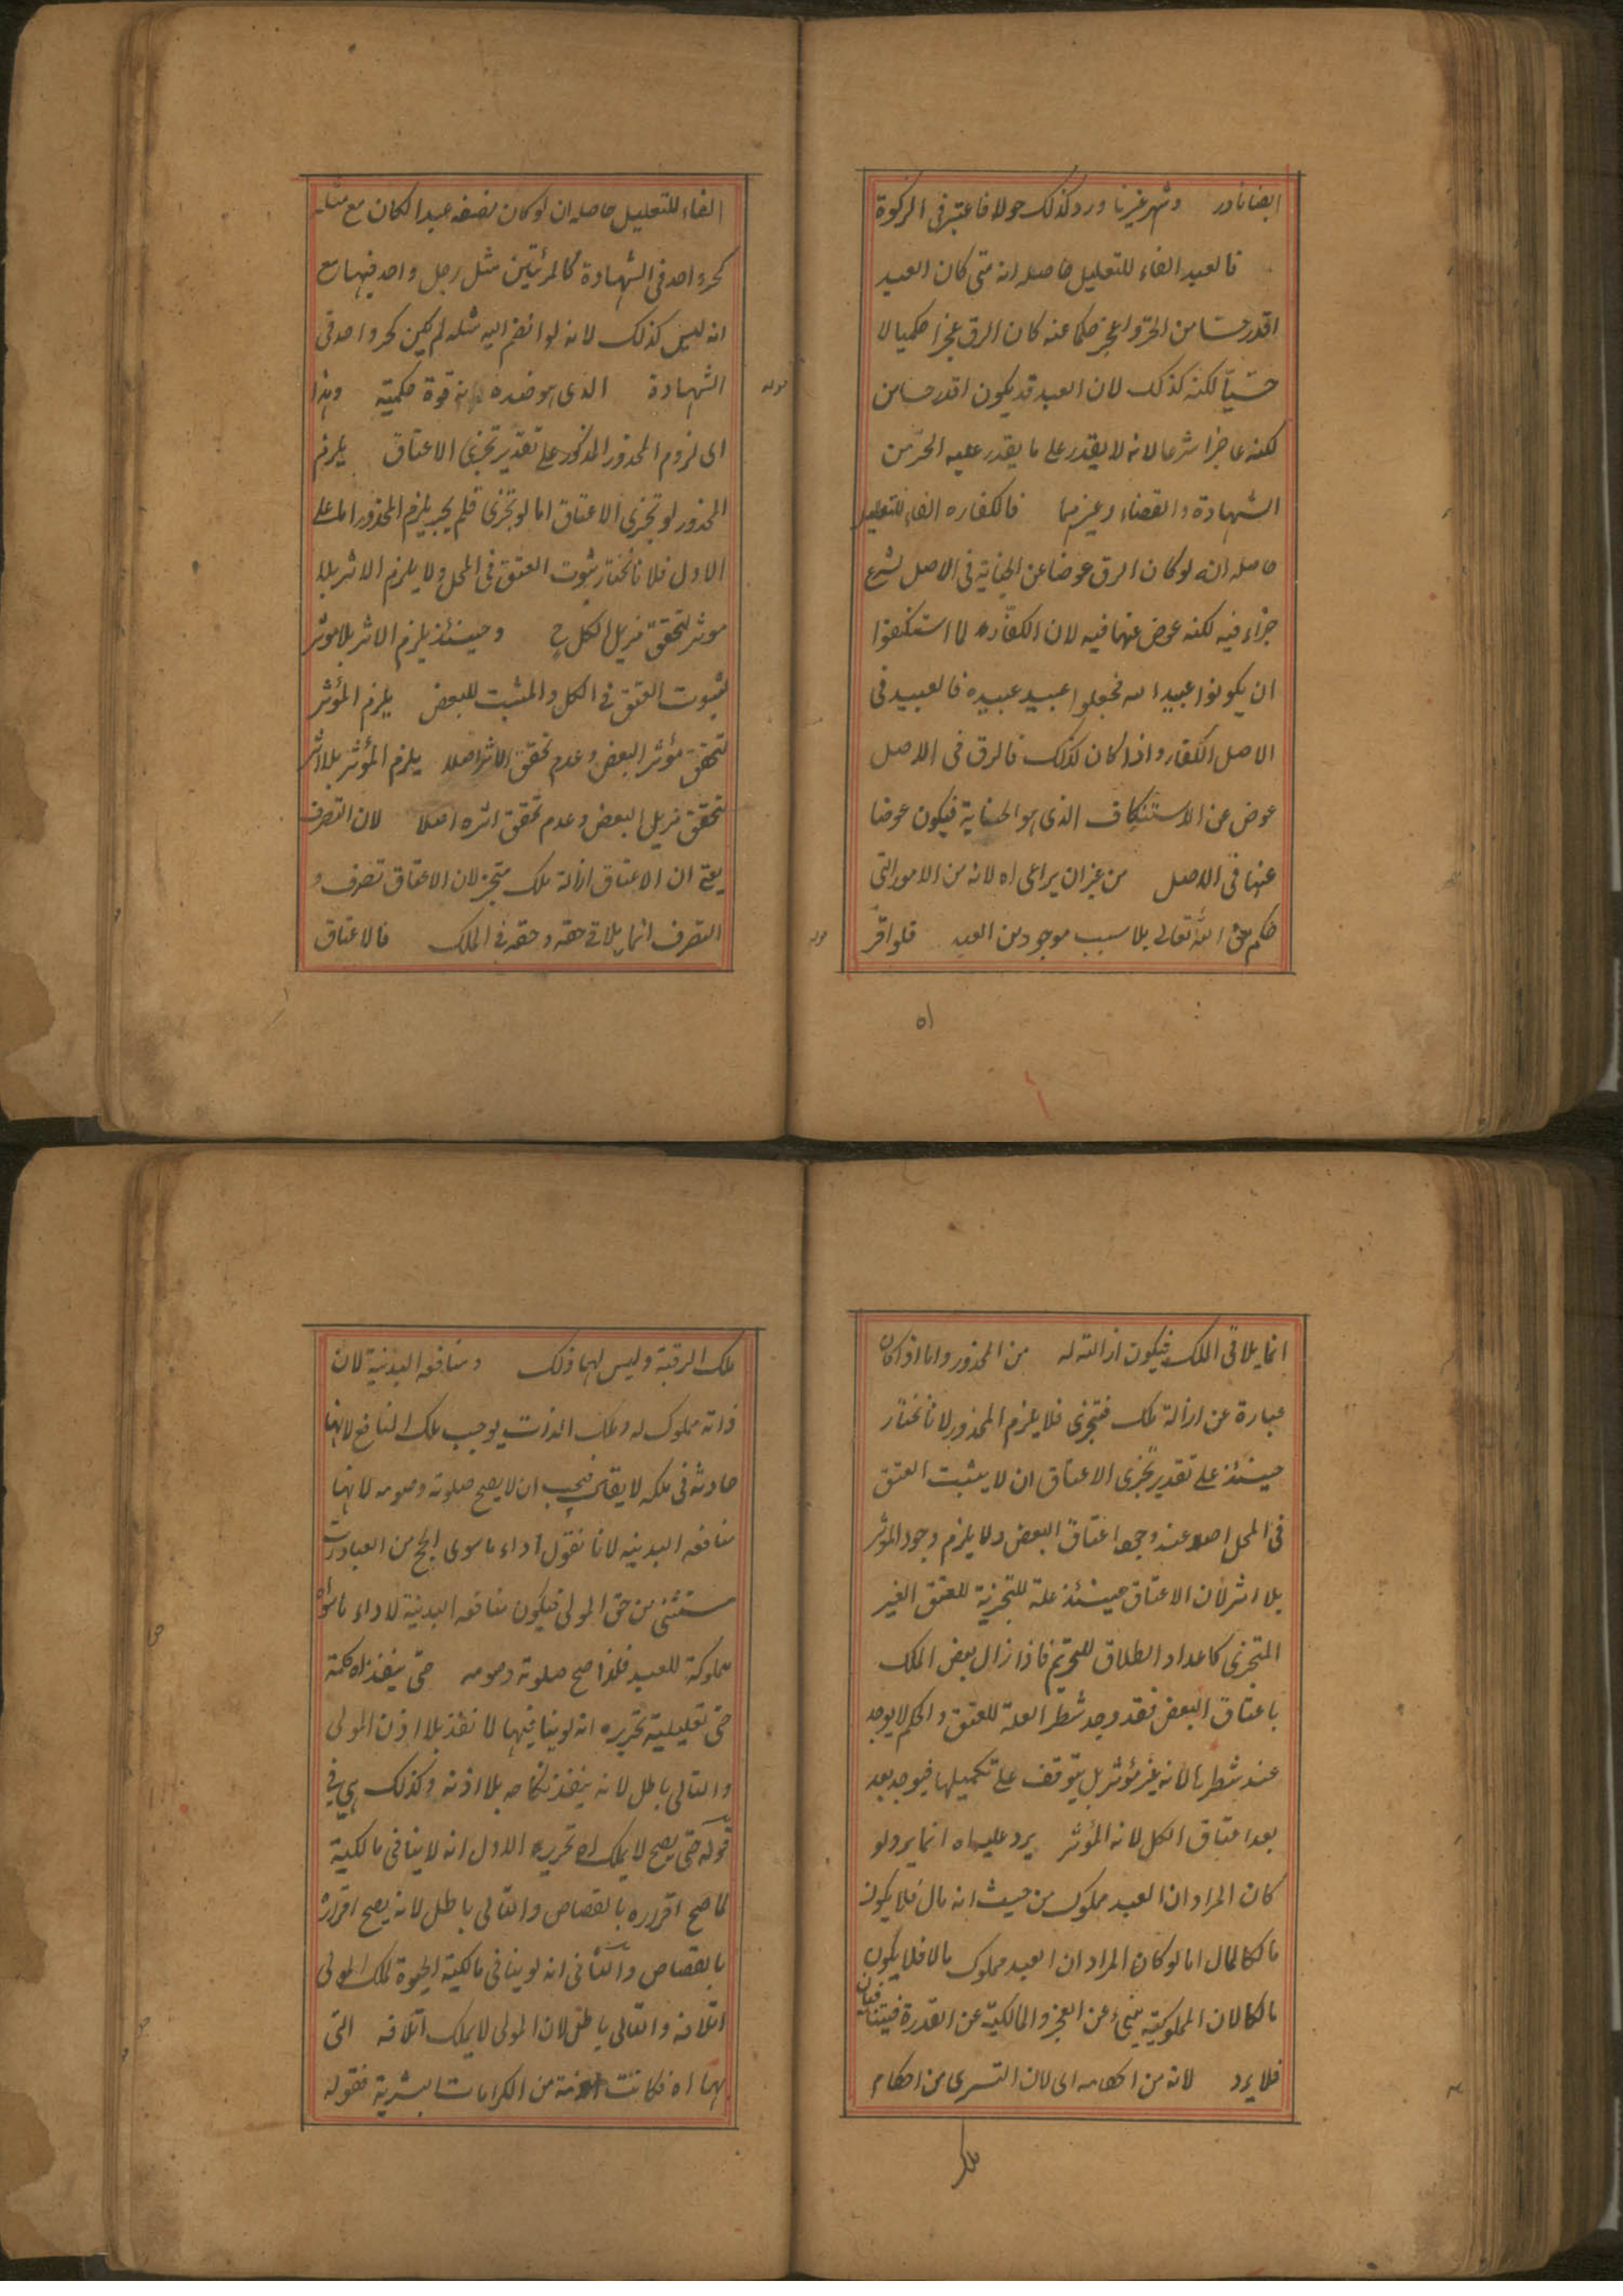 ايضا نادر وشهر غيرنا ورد كذلك حولا فاعتبر في الزكوة
فالعبد الفاء للتعليل حاصله انه متى كان العبد
اقدر حسا من الحر واعجز حكما عنه كان الرق عجزا حكميا لا
حسيّا لكنه كذلك لان العبد قد يكون اقدر حسا من
لكنه عاجزا شرعا لانه لا يقدر على ما يقدر عليه الحر من
الشهادة والقضاء وغيرهما فالكفاره الفاء للتعليل
حاصله انه لو كان الرق عوضا عن الجناية في الاصل لشرع
جزاء فيه لكنه عوض عنها فيه لان الكفّار لما استنكفوا
ان يكونوا عبيد الله فجعلوا عبيد عبيده فالعبيد في
الاصل الكفار واذا كان كذلك فالرق في الاصل
عوض عن الاستنكاف الذي هو الجناية فيكون عوضا
عنها في الاصل من غير ان يراعى اه لانه من الامور التي
حكم الله تعالى بلا سبب موجود من العبد فلو اقر
اه
الفاء للتعليل حاصله ان لو كان نصفه عبدا لكان مع مثله
كحر واحد في الشهادة كالمرئتين مثل رجل واحد فيها مع
انه ليس كذلك لانه لو انضم اليه مثله لم يكن كحر واحد في
الشهادة الذي هو ضده قوة حكمية وهذا
اى لزوم المحذور المذكور على تقدير تجزى الاعتاق يلزم
المحذور لو تجزى الاعتاق اما لو تجزى فلم يجز يلزم المحذور اما على
الاول فلانا نختار ثبوت العتق في المحل ولا يلزم الاثر بلا
موثر لتحقق مزيل الكل ح وحينئذ يلزم الاثر بلا موثر
لثبوت العتق في الكل والمثبت للبعض يلزم المؤثر
لتحقق مؤثر البعض وعدم تحقق الاثر اصلا يلزم المؤثر بلا اثر
لتحقق مزيل البعض وعدم تحقق اثره اصلا لان التصرف
يعنى ان الاعتاق ازالة ملك متجز لان الاعتاق تصرف و
التصرف انما يلاقى حقه وحقه في الملك فالاعتاق
انما يلاقى الملك فيكون ازالته له من المحذور واما اذا كان
عبارة عن ازالة ملك فتجزى فلا يلزم المحذور لانا نختار
حينئذ على تقدير تجزى الاعتاق ان لا يثبت العتق
في المحل اصلا عند وجود اعتاق البعض ولا يلزم وجود الموثر
بلا اثر لان الاعتاق حينئذ علة للتجزية للعتق الغير
المتجزى كاعداد الطلاق للتحريم فاذا زال بعض الملك
باعتاق البعض فقد وجد شطر العلة للعتق والحكم لا يوجد
عند شطرها لانه غير مؤثر بل يتوقف على تكميلها فيوجد بعد
بعد اعتاق الكل لانه المؤثر يرد عليه اه انما يرد لو
كان المراد ان العبد مملوك من حيث انه مال فلا يكون
مالكا لمال اما لو كان المراد ان العبد مملوك مالا فلا يكون
مالكا لان المملوكية ينبئ عن العجز والمالكية عن القدرة فيتنافيان
فلا يرد لانه من احكامه اى لان التسرى من احكام
ملك
ملك الرقبة وليس لهما ذلك ومنافعه البدنية لان
ذاته مملوك له وملك الذات يوجب ملك المنافع لانها
حادثه في ملكه لا يقال فيجب ان لا يصح صلوته وصومه لانها
منافعه البدنيه لانا نقول اداء ما سوى الحج من العبادات
مستثنى من حق المولى فيكون منافعه البدنية لاداء ما سواه
مملوكة للعبد فلذا صح صلوته وصومه حتى ينفذ اه كلمة
حتى تعليلية تحريره انه لو ينافيها لما نفذ بلا اذن المولى
والتالى باطل لانه ينفذ نكاحه بلا اذنه وكذلك هي في
قوله حتى يصح لا يملك اه تحريره الاول انه لا ينافى مالكية
لما صح اقراره بالقصاص والتالى باطل لانه يصح اقراره
بالقصاص والثانى انه لو ينافى مالكية الحيوة لملك المولى
اتلافه والتالى باطل لان المولى لا يملك اتلافه التى
بها اه فكانت من الكرامات البشرية فقوله